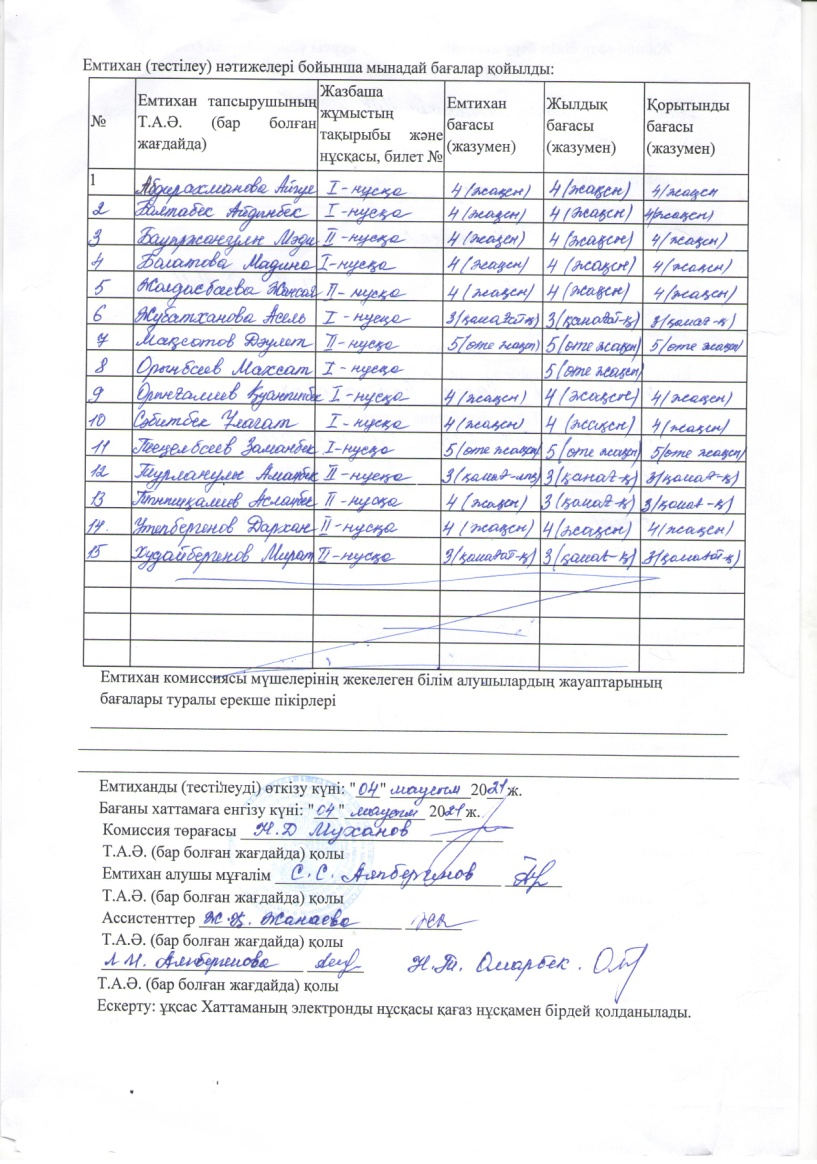 Емтихан (тестілеу) нәтижелері бойынша мынадай бағалар қойылды:
№ Емтихан тапсырушының Т.А.Ә. (бар болған жағдайда) Жазбаша жұмыстың тақырыбы және нұсқасы, билет № Емтихан бағасы (жазумен) Жылдық бағасы (жазумен) Қорытынды бағасы (жазумен)
1 Абдирахманова Айгул I - нусқа 4 (жақсы) 4 (жақсы) 4 (жақсы
2 Айдинбек I - нусқа 4 (жақсы) 4 (жақсы) 4(жақсы)
3 Мәди II - нусқа 4 (жақсы) 4 (жақсы) 4 (жақсы)
4 Болатова Мадина I - нусқа 4 (жақсы) 4 (жақсы) 4 (жақсы)
5 Жолдасбаева II - нусқа 4 (жақсы) 4 (жақсы) 4 (жақсы)
6 Жубатханова Асель I - нусқа 3(қанағат-қ) 3(қанағат-қ) 3(қанағ-қ)
7 Мақсотов Дәулет II - нусқа 5(өте жақсы) 5(өте жақсы) 5(өте жақсы)
8 Орынбсеев Махсат I - нусқа 5(өте жақсы)
9 I - нусқа 4 (жақсы) 4 (жақсы) 4 (жақсы)
10 Сәбитбек Улагат I - нусқа 4 (жақсы) 4 (жақсы) 4 (жақсы)
11 Заманбек I - нусқа 5(өте жақсы) 5(өте жақсы) 5(өте жақсы)
12 II - нусқа 3(қанағ 3(қанағ-қ) 3(қанағ-қ)
13 II - нусқа 4 (жақсы) 3(қанағ-қ) 3(қанағ-қ)
14. Утепбергенов Дархан II - нусқа 4 (жақсы) 4(жақсы) 4(жақсы)
15 Худайбергенов Мират II - нусқа 3(қанағат-қ) 3(қанағ-қ) 3(қанағат-қ)
Емтихан комиссиясы мүшелерінің жекелеген білім алушылардың жауаптарының
бағалары туралы ерекше пікірлері
Емтиханды (тестілеуді) өткізу күні: "04" маусым 2021 ж.
Бағаны хаттамаға енгізу күні: "04" маусым 2021 ж.
Комиссия төрағасы Н.Д Муханов
Т.А.Ә. (бар болған жағдайда) қолы
Емтихан алушы мұғалім С.С. Аяпбергенов
Т.А.Ә. (бар болған жағдайда) қолы
Ассистенттер Ж.Қ. Жанаева
Т.А.Ә. (бар болған жағдайда) қолы
Н.Т. Омарбек.
Т.А.Ә. (бар болған жағдайда) қолы
Ескерту: ұқсас Хаттаманың электронды нұсқасы қағаз нұсқамен бірдей қолданылады.